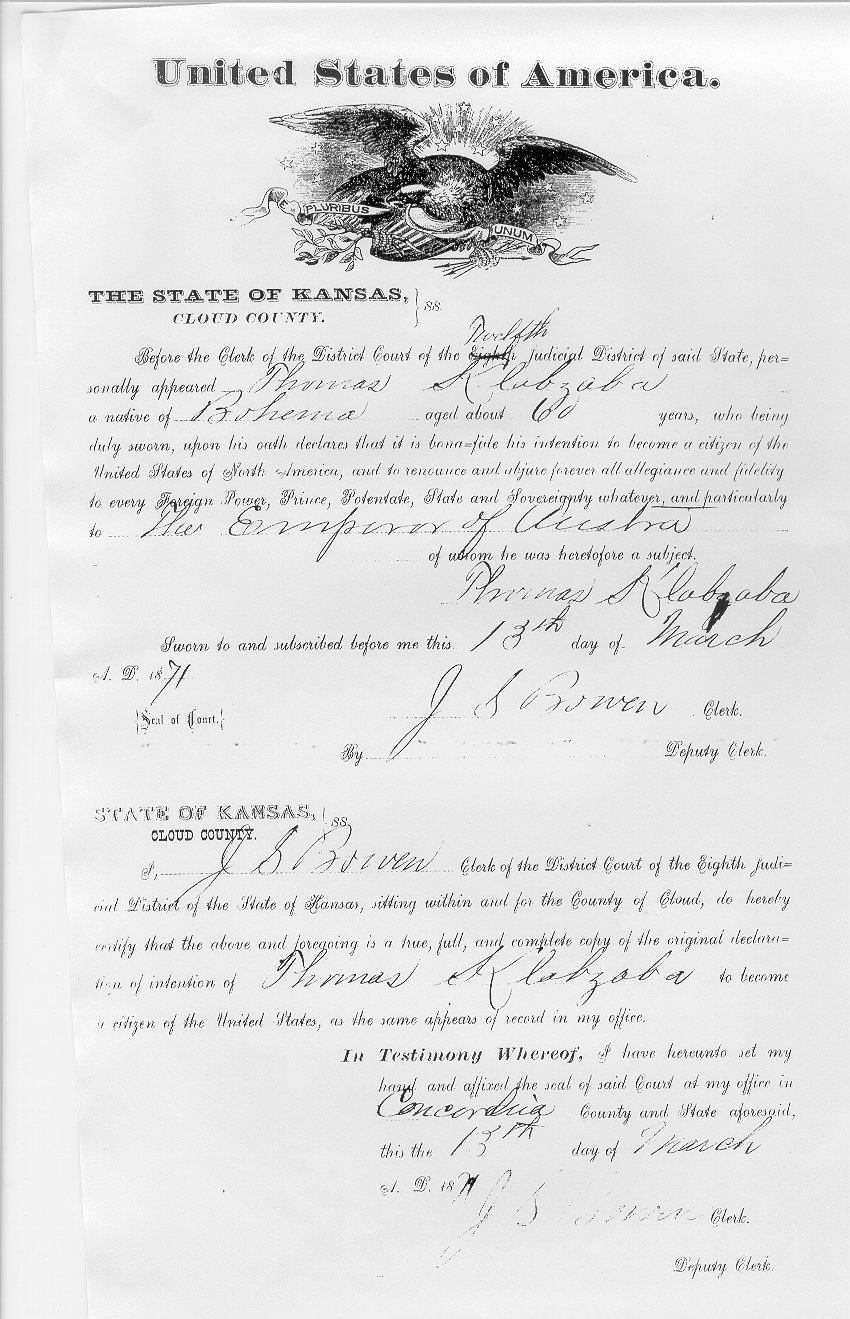 United States of America.
E PLURIBUS UNUM
THE STATE OF KANSAS, } ss.
CLOUD COUNTY.
Twelfth
Before the Clerk of the District Court of the Eighth Judicial District of said State, per=
sonally appeared Thomas Klobzoba
a native of Bohema aged about 60 years, who being
duly sworn, upon his oath declares that it is bona=fide his intention to become a citizen of the
United States of North America, and to renounce and abjure forever all allegiance and fidelity
to every Foreign Power, Prince, Potentate, State and Sovereignty whatever, and particularly
to The Emperor of Austra
of whom he was heretofore a subject.
Thomas Klobzoba
Sworn to and subscribed before me this 13th day of March
A. D. 1871
{Seal of Court.} J S Bowen Clerk.
By Deputy Clerk.
STATE OF KANSAS, } ss.
CLOUD COUNTY.
I, J S Bowen Clerk of the District Court of the Eighth Judi=
cial District of the State of Kansas, sitting within and for the County of Cloud, do hereby
certify that the above and foregoing is a true, full, and complete copy of the original declara=
tion of intention of Thomas Klobzoba to become
a citizen of the United States, as the same appears of record in my office.
In Testimony Whereof, I have hereunto set my
hand and affixed the seal of said Court at my office in
Concordia County and State aforesaid,
this the 13th day of March
A. D. 1871
J S Bowen Clerk.
Deputy Clerk.